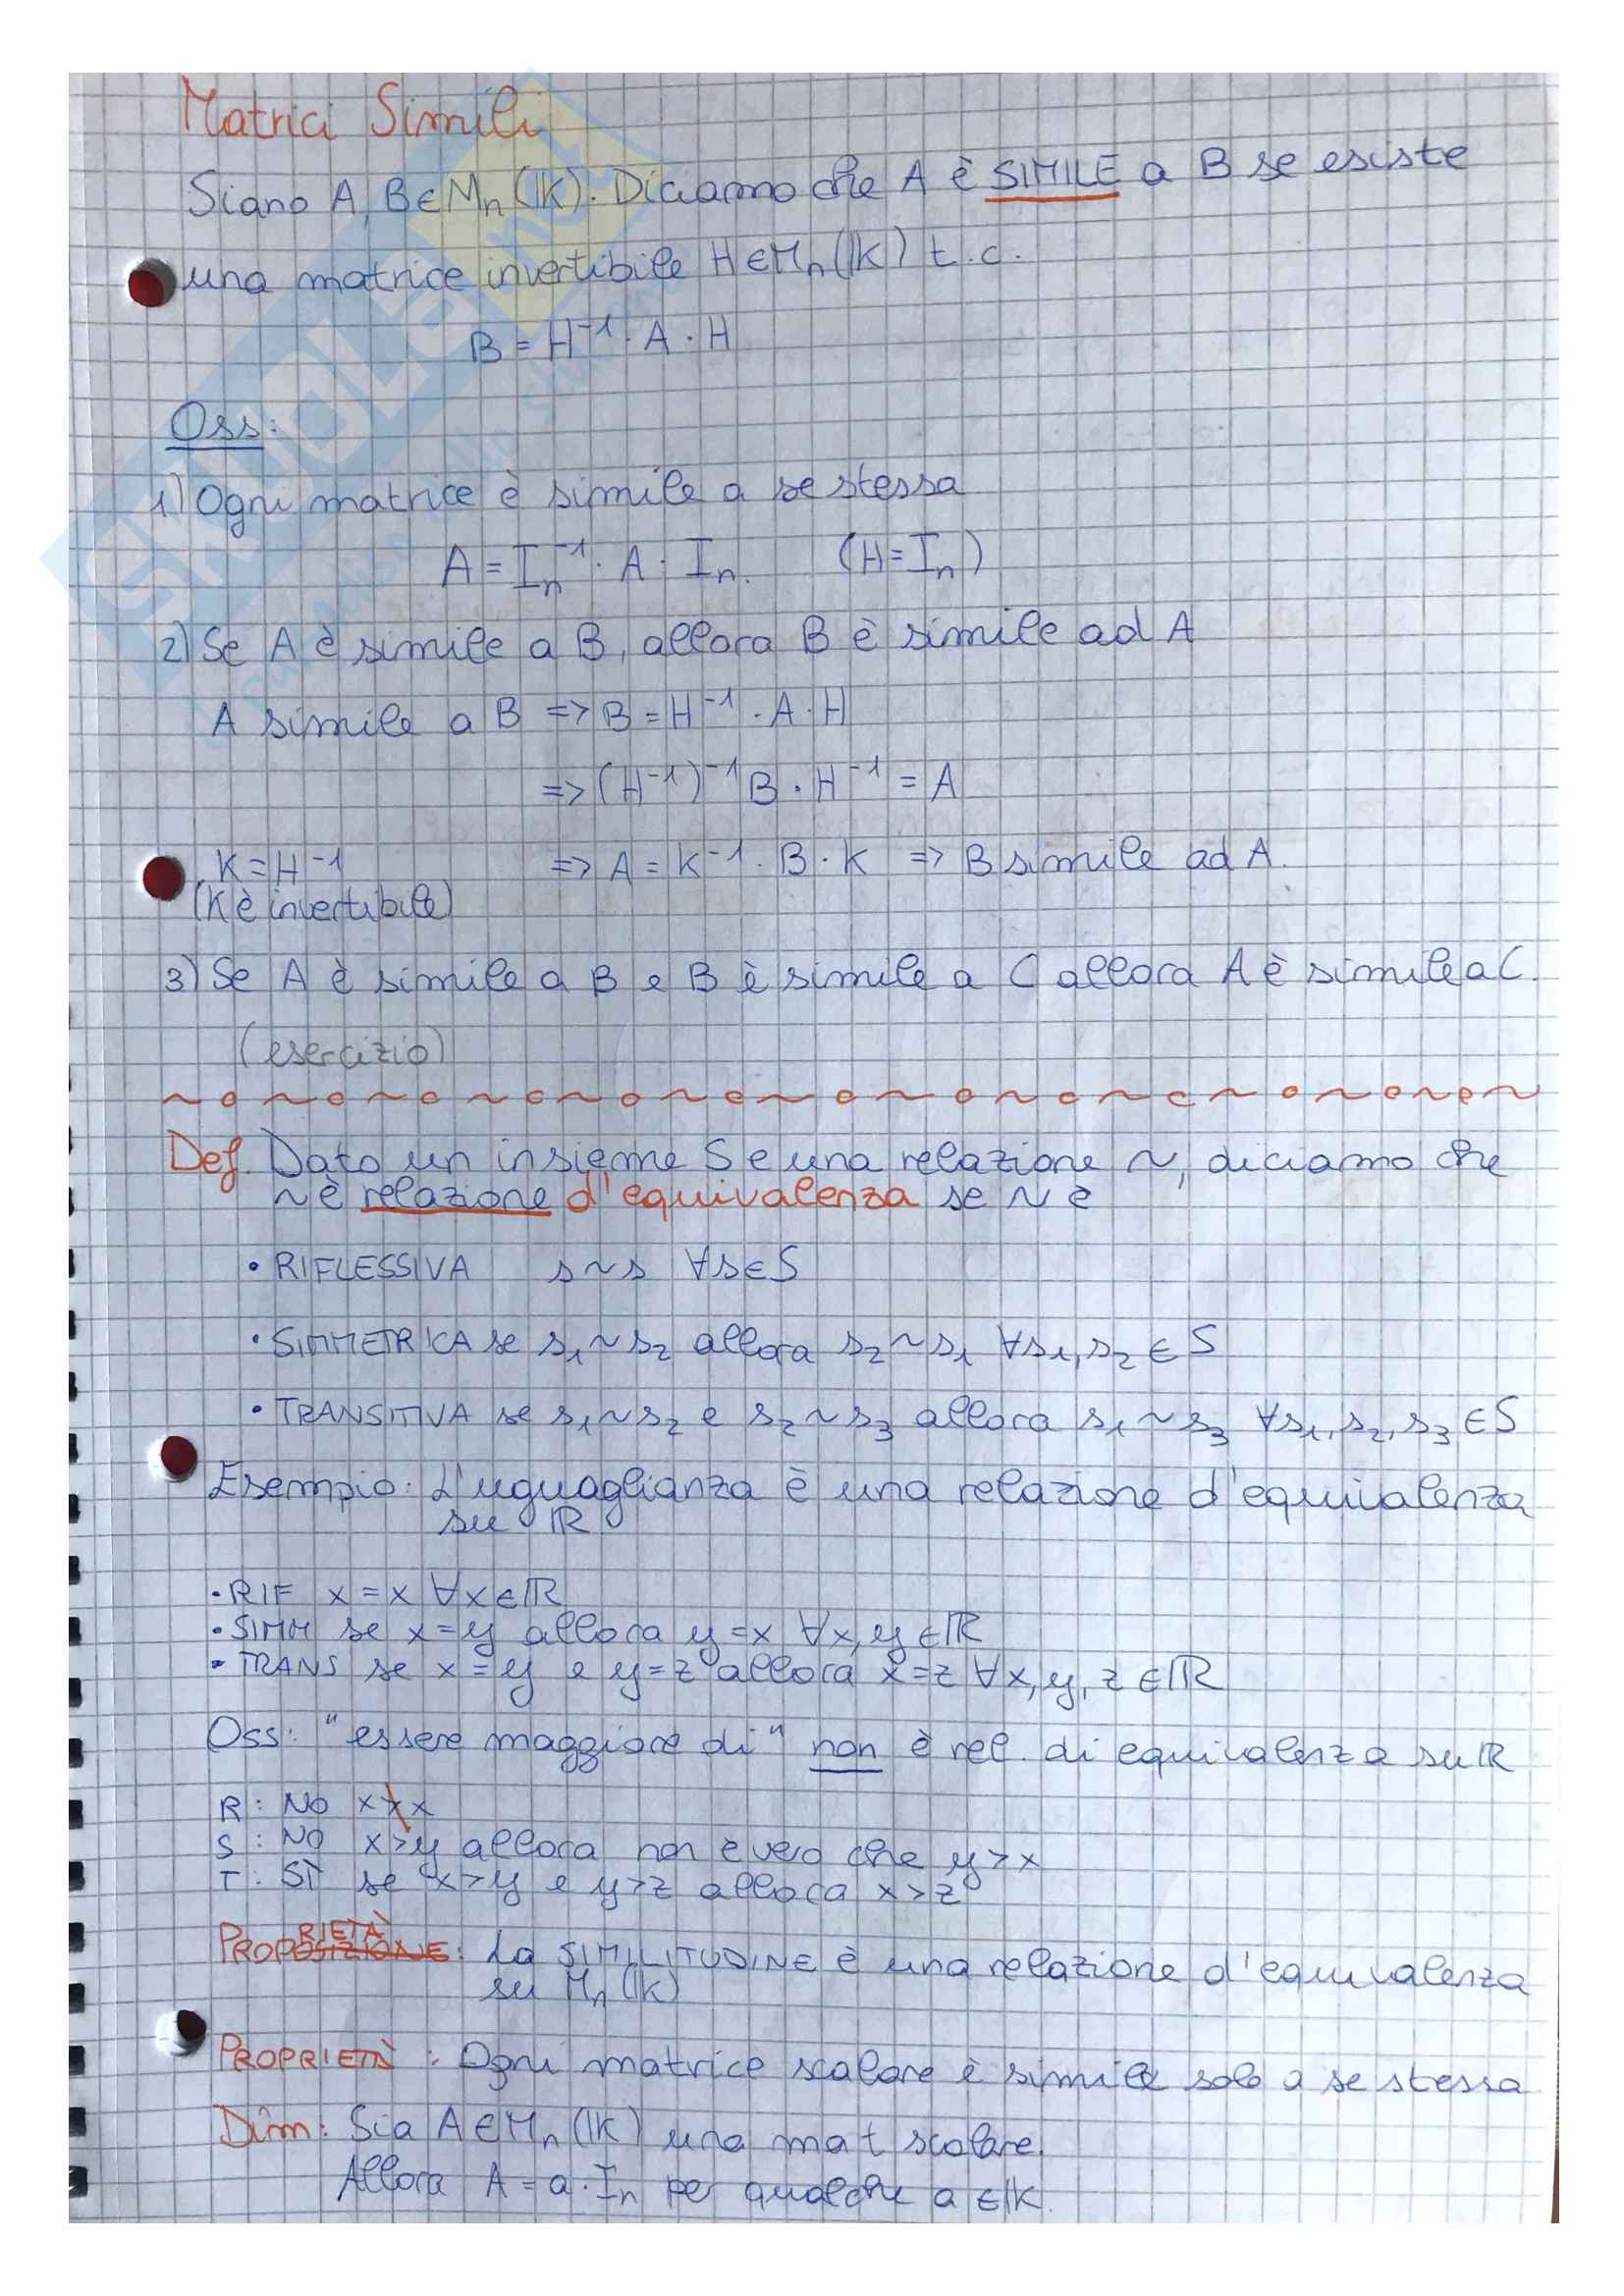 Matrici Simili
Siano A, B ∈ Mn (IK). Diciamo che A è SIMILE a B se esiste
una matrice invertibile H ∈ Mn (IK) t.c.
B = H⁻¹ · A · H
Oss:
1) Ogni matrice è simile a se stessa
A = In⁻¹ · A · In. (H = In)
2) Se A è simile a B, allora B è simile ad A
A simile a B => B = H⁻¹ · A · H
=> (H⁻¹)⁻¹ B · H⁻¹ = A
K = H⁻¹ => A = K⁻¹ · B · K => B simile ad A.
(K è invertibile)
3) Se A è simile a B e B è simile a C allora A è simile a C.
(esercizio)
Def. Dato un insieme S e una relazione ~, diciamo che
~ è relazione d'equivalenza se ~ è
• RIFLESSIVA s ~ s ∀s ∈ S
• SIMMETRICA se s₁ ~ s₂ allora s₂ ~ s₁ ∀s₁, s₂ ∈ S
• TRANSITIVA se s₁ ~ s₂ e s₂ ~ s₃ allora s₁ ~ s₃ ∀s₁, s₂, s₃ ∈ S
Esempio: L'uguaglianza è una relazione d'equivalenza
su IR
• RIF x = x ∀x ∈ IR
• SIMM se x = y allora y = x ∀x, y ∈ IR
• TRANS se x = y e y = z allora x = z ∀x, y, z ∈ IR
Oss: "essere maggiore di" non è rel. di equivalenza su IR
R: NO x ≯ x
S: NO x > y allora non è vero che y > x
T: SÌ se x > y e y > z allora x > z
PROPRIETÀ: La SIMILITUDINE è una relazione d'equivalenza
su Mn (IK)
PROPRIETÀ: Ogni matrice scalare è simile solo a se stessa
Dim: Sia A ∈ Mn (IK) una mat scalare.
Allora A = a · In per qualche a ∈ IK.